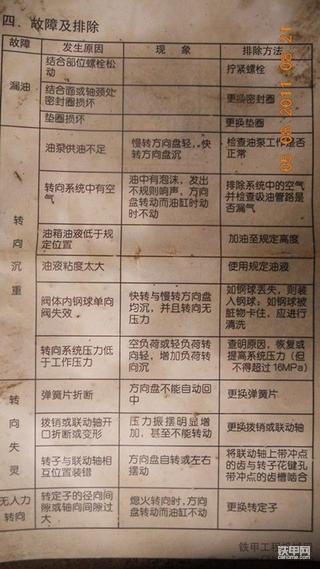 四．故障及排除
故障 发生原因 现　象 排除方法
漏油
结合部位螺栓松
动
拧紧螺栓
结合面或轴颈处
密封圈损坏
更换密封圈
垫圈损坏
更换垫圈
转向沉重
油泵供油不足
慢转方向盘轻，快
转方向盘沉
检查油泵工作是否
正常
转向系统中有空
气
油中有泡沫，发出
不规则响声，方向
盘转动而油缸时动
时不动
排除系统中的空气
并检查吸油管路是
否漏气
油箱油液低于规
定位置
加油至规定高度
油液粘度太大
使用规定油液
阀体内钢球单向
阀失效
快转与慢转方向盘
均沉，并且转向无
压力
如钢球丢失，则装
入钢球；如钢球被
脏物卡住，应进行
清洗
转向系统压力低
于工作压力
空负荷或轻负荷转
向轻，增加负荷转
向沉
查明原因，恢复或
提高系统压力（但
不得超过16MPa）
转向失灵
弹簧片折断
方向盘不能自动回
中
更换弹簧片
拨销或联动轴开
口折断或变形
压力振摆明显增
加，甚至不能转动
更换拨销或联动轴
转子与联动轴相
互位置装错
方向盘自转或左右
摆动
将联动轴上带冲点
的齿与转子花键孔
带冲点的齿槽啮合
无人力
转向
转定子的径向间
隙或轴向间隙过
大
熄火转向时，方向
盘转动而油缸不动
更换转定子
05 08 2011 08 21
铁甲工程机械网
铁甲网